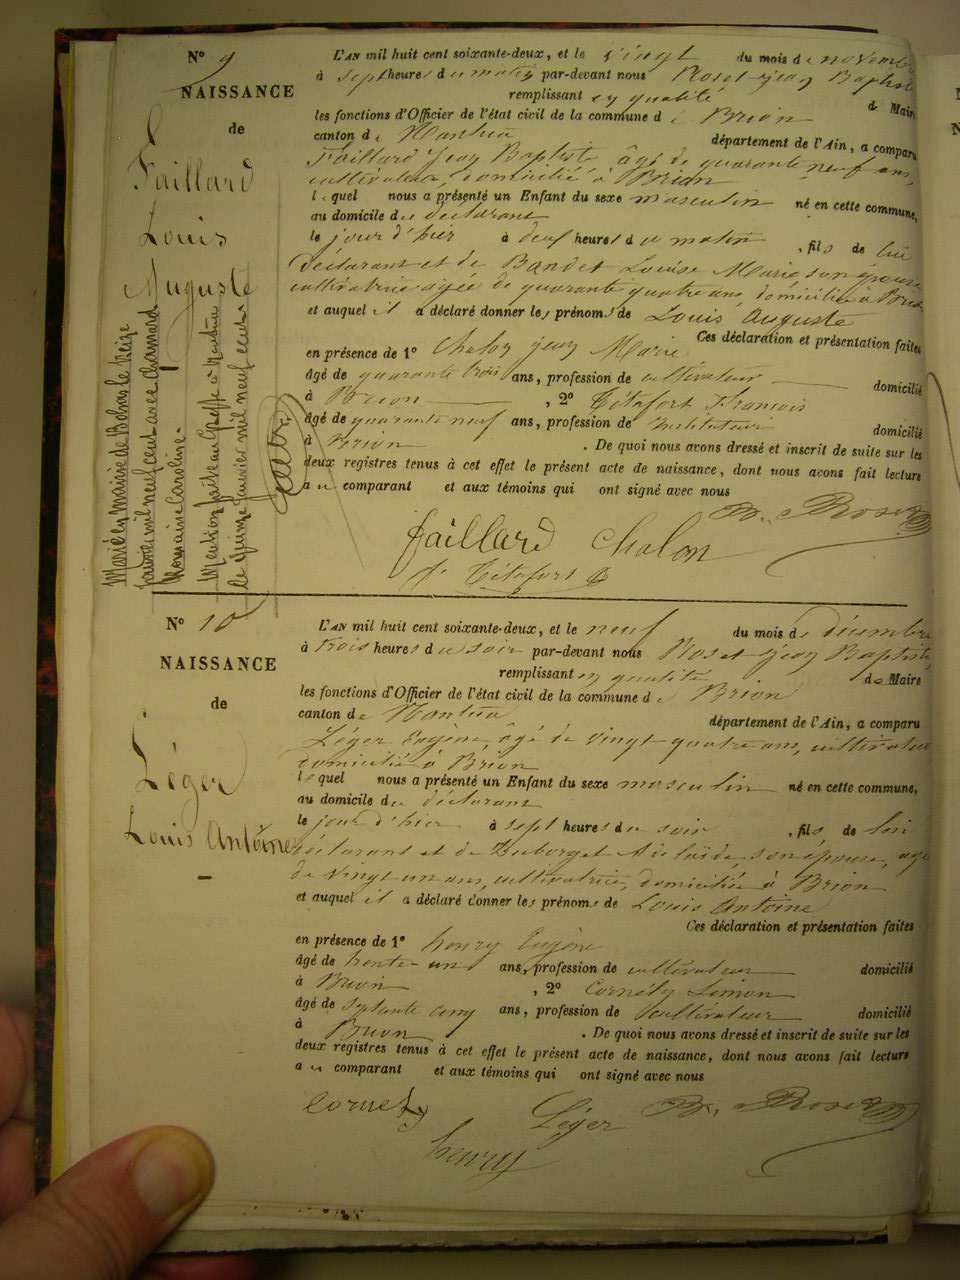 N° 9
NAISSANCE
de
Faillard
Louis
Auguste
Marié en mairie de Belras le treize
janvier mil neuf cent avec Chamard
Romaine Caroline.
Mention faite au Greffe à Nantua
le quinze janvier mil neuf cent.
L'AN mil huit cent soixante-deux, et le vingt du mois de novembre
à sept heures du matin par-devant nous Roset Jean Baptiste
remplissant en qualité de Maire
les fonctions d'Officier de l'état civil de la commune de Brion
canton de Nantua département de l'Ain, a comparu
Faillard Jean Baptiste âgé de quarante neuf ans,
cultivateur, domicilié à Brion
lequel nous a présenté un Enfant du sexe masculin né en cette commune,
au domicile du déclarant
le jour d'hier à deux heures du matin, fils de lui
déclarant et de Bandet Louise Marie son épouse
cultivatrice agée de quarante quatre ans, domiciliée à Brion
et auquel il a déclaré donner les prénoms de Louis Auguste
Ces déclaration et présentation faites
en présence de 1° Chalon Jean Marie
âgé de quarante trois ans, profession de cultivateur domicilié
à Brion, 2° Tétafort François
âgé de quarante neuf ans, profession de Instituteur domicilié
à Brion. De quoi nous avons dressé et inscrit de suite sur les
deux registres tenus à cet effet le présent acte de naissance, dont nous avons fait lecture
au comparant et aux témoins qui ont signé avec nous
B. Roset
faillard Chalon
f. Tétafort
N° 10
NAISSANCE
de
Léger
Louis Antoine
L'AN mil huit cent soixante-deux, et le neuf du mois de décembre
à trois heures du soir par-devant nous Roset Jean Baptiste
remplissant en qualité de Maire
les fonctions d'Officier de l'état civil de la commune de Brion
canton de Nantua département de l'Ain, a comparu
Léger Eugène, âgé de vingt quatre ans, cultivateur
domicilié à Brion
lequel nous a présenté un Enfant du sexe masculin né en cette commune,
au domicile du déclarant
le jour d'hier à sept heures du soir, fils de lui
déclarant et de Adélaïde, son épouse, agée
de vingt un ans, cultivatrice, domiciliée à Brion
et auquel il a déclaré donner les prénoms de Louis Antoine
Ces déclaration et présentation faites
en présence de 1° henry Eugène
âgé de trente-un ans, profession de cultivateur domicilié
à Brion, 2° Cornély Simon
âgé de septante cinq ans, profession de cultivateur domicilié
à Brion. De quoi nous avons dressé et inscrit de suite sur les
deux registres tenus à cet effet le présent acte de naissance, dont nous avons fait lecture
au comparant et aux témoins qui ont signé avec nous
Cornely Léger B. Roset
henry